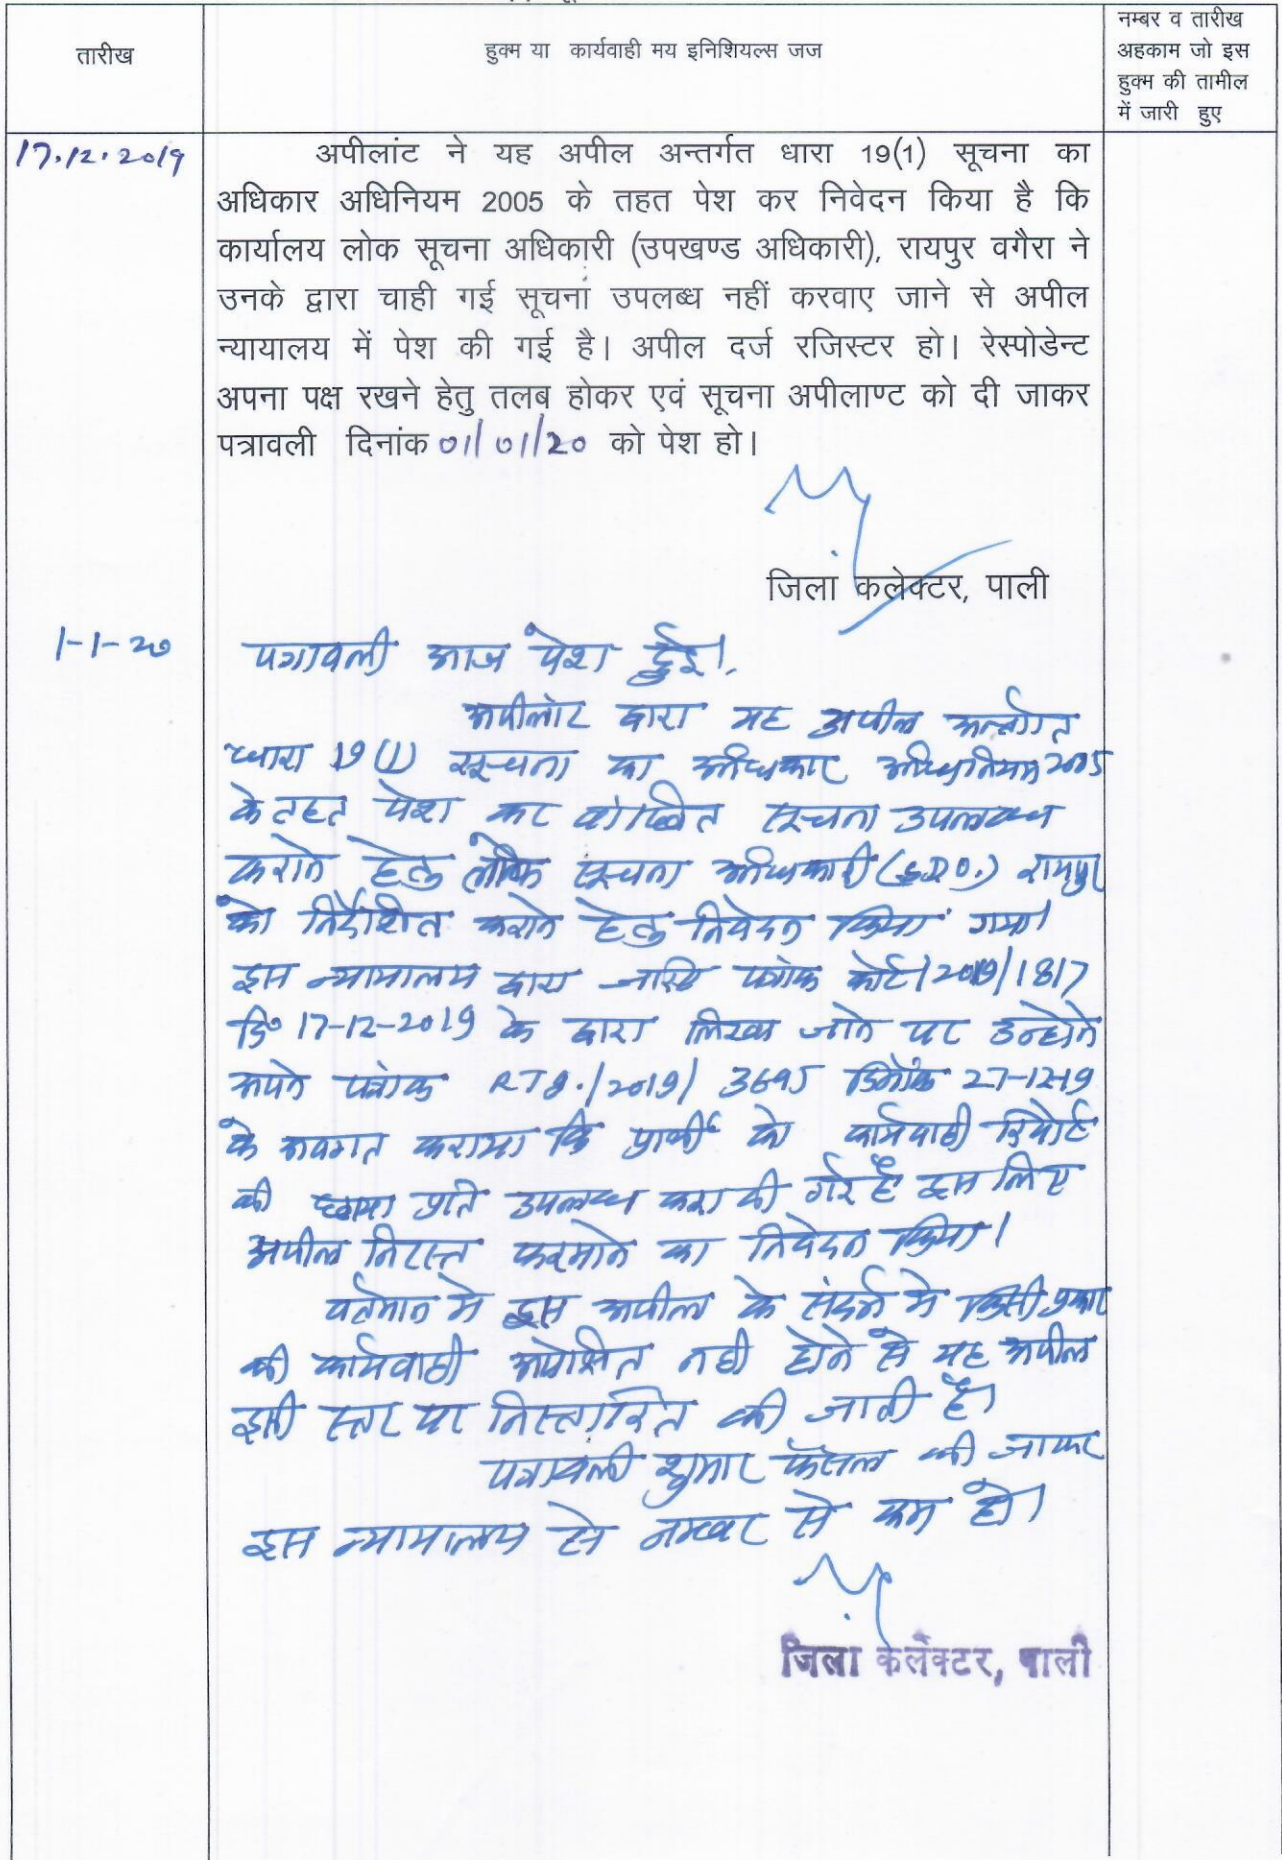 तारीख
हुक्म या कार्यवाही मय इनिशियल्स जज
नम्बर व तारीख
अहकाम जो इस
हुक्म की तामील
में जारी हुए
17.12.2019
अपीलांट ने यह अपील अन्तर्गत धारा 19(1) सूचना का
अधिकार अधिनियम 2005 के तहत पेश कर निवेदन किया है कि
कार्यालय लोक सूचना अधिकारी (उपखण्ड अधिकारी), रायपुर वगैरा ने
उनके द्वारा चाही गई सूचना उपलब्ध नहीं करवाए जाने से अपील
न्यायालय में पेश की गई है। अपील दर्ज रजिस्टर हो। रेस्पोडेन्ट
अपना पक्ष रखने हेतु तलब होकर एवं सूचना अपीलाण्ट को दी जाकर
पत्रावली दिनांक 01/01/20 को पेश हो।
जिला कलेक्टर, पाली
1-1-20
पत्रावली आज पेश हुई।
अपीलांट द्वारा यह अपील अन्तर्गत
धारा 19(1) सूचना का अधिकार अधिनियम 2005
के तहत पेश कर वांछित सूचना उपलब्ध
कराने हेतु लोक सूचना अधिकारी (S.D.O.) रायपुर
को निर्देशित कराने हेतु निवेदन किया गया।
इस न्यायालय द्वारा जारिये पत्रांक कोर्ट/2019/1817
दि० 17-12-2019 के द्वारा लिखा जाने पर उन्होने
अपने पत्रांक RTI./2019/3695 दिनांक 27-12-19
के अवगत कराया कि प्रार्थी को कार्यवाही रिपोर्ट
की छाया प्रति उपलब्ध करा दी गई है इस लिए
अपील निरस्त फरमाने का निवेदन किया।
वर्तमान मे इस अपील के संदर्भ मे किसी प्रकार
की कार्यवाही अपेक्षित नही होने से यह अपील
इसी स्तर पर निस्तारित की जाती है।
पत्रावली शुमार फैसल की जाकर
इस न्यायालय से नम्बर से कम हो।
जिला कलेक्टर, पाली